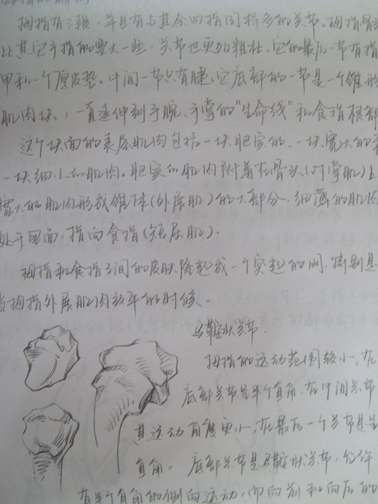 拇指有三根，并且有与其余四指同样多的关节。拇指骨
比其它手指的要大一些，关节也更为粗壮。它的最后一节有指
甲和一个厚皮垫。中间一节只有腱，它底部的一节是一个锥形
肌肉块，一直延伸到手腕、手掌的"生命线"和食指根部
这个块面的表层肌肉包括一块肥实的、一块宽大的和
一块细小的肌肉。肥实的肌肉附着在骨头(对掌肌)上
宽大的肌肉形成锥体(外展肌)的大部分、细薄的肌肉
处于里面，指向食指(短屈肌)。
拇指和食指之间的皮肤隆起成一个突起的网，特别是
当拇指外展肌肉放平的时候。
马鞍状关节.
拇指的运动范围较小，在
底部关节是半个直角，在中间关节
其运动角度更小，在最后一个关节是
直角。底部关节是马鞍状关节，允许
有半个直角的侧向运动，即向前和向后的